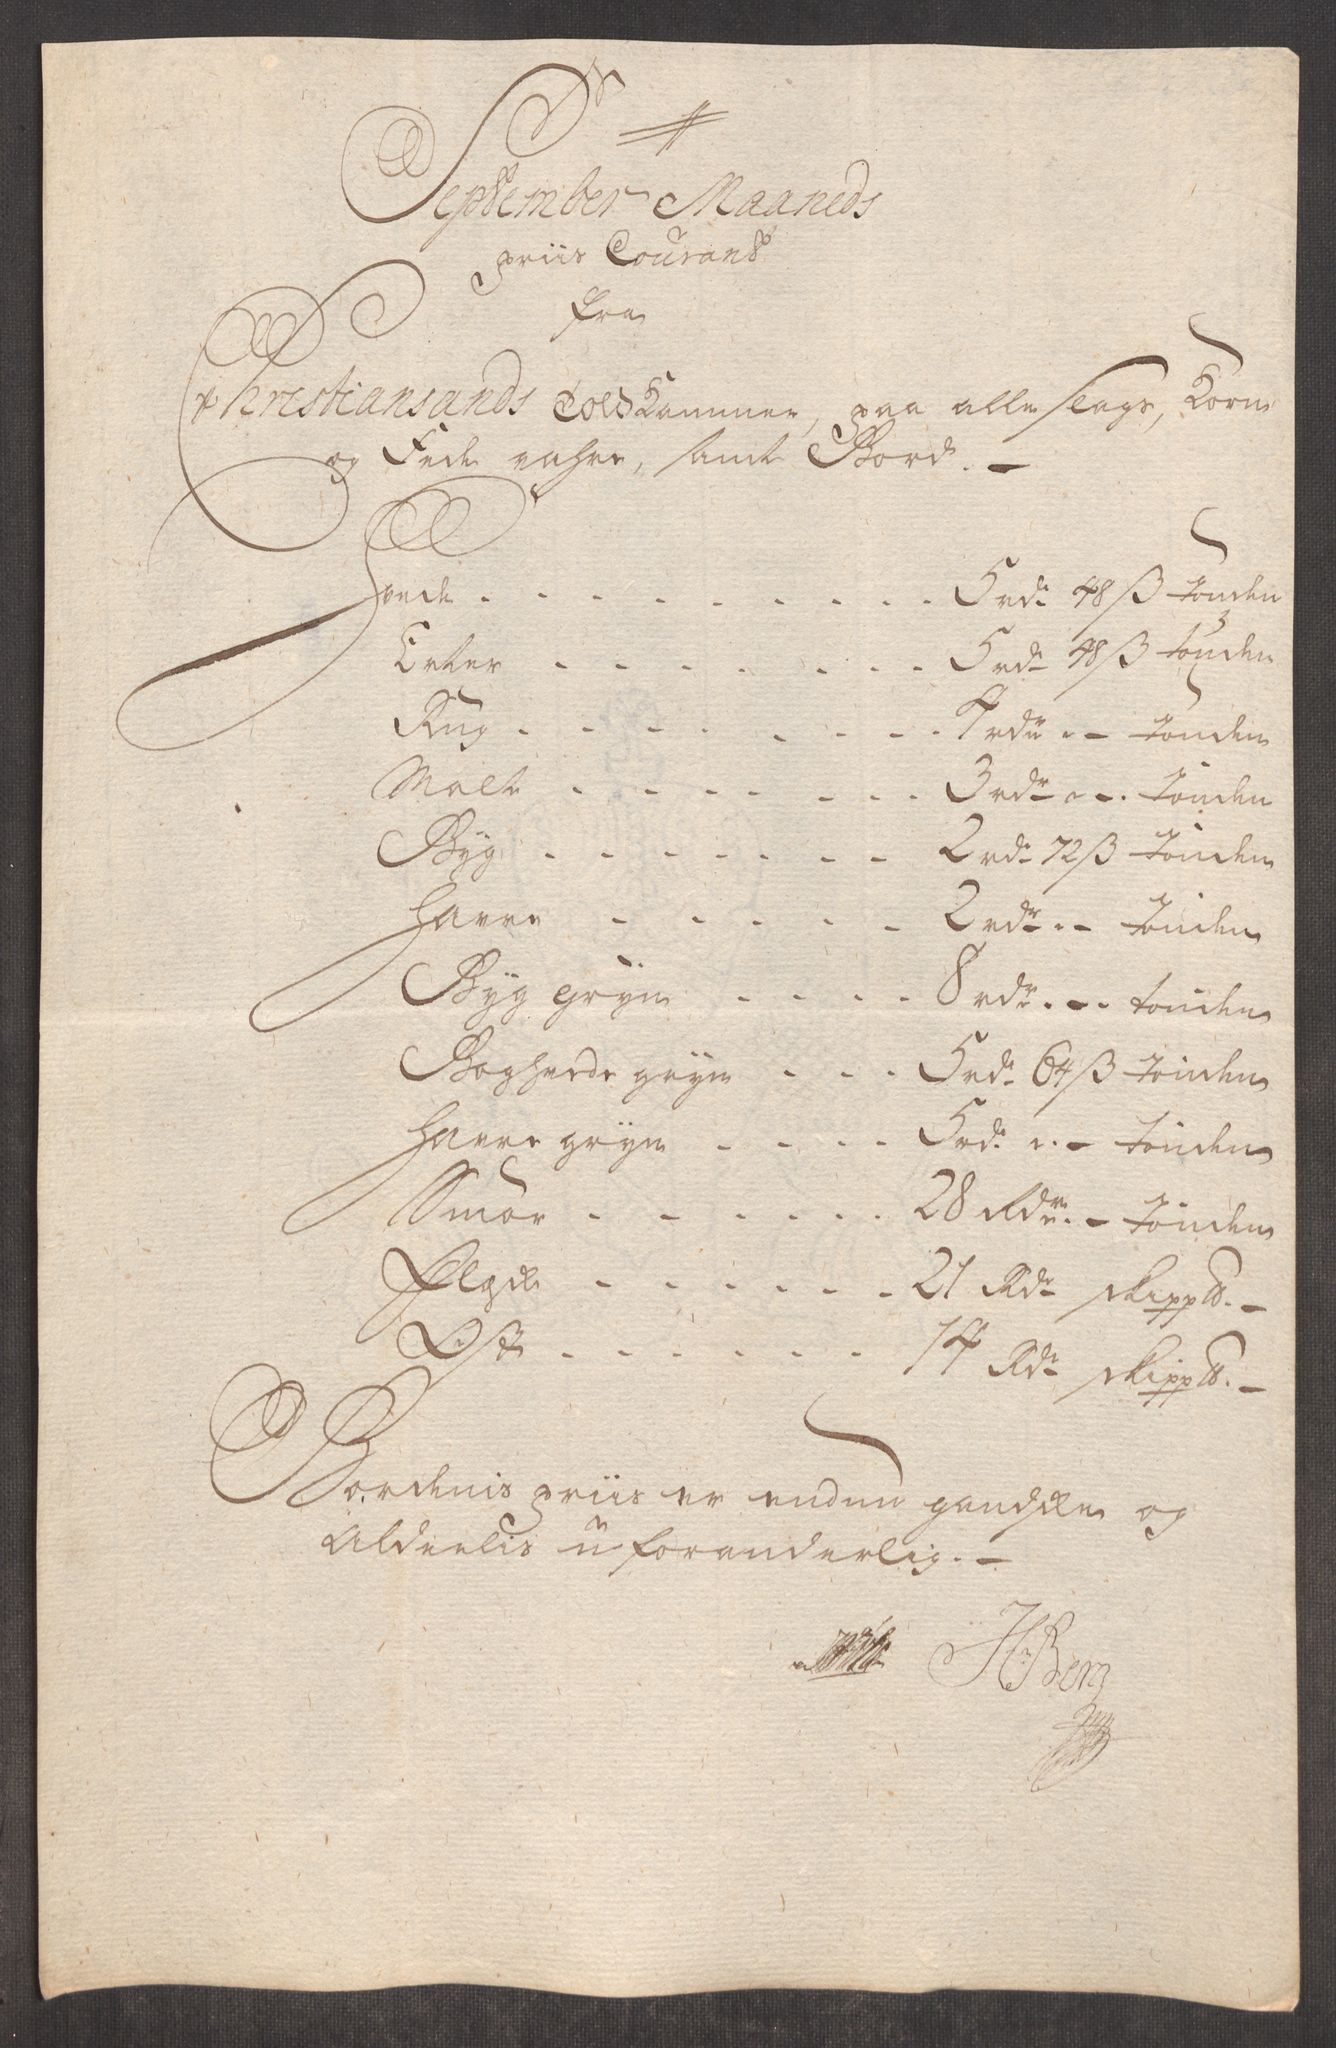 September Maaneds
priis Courant
fra
Christiansands Told Kammer, paa alle slags, Korn
og Fede vahre, samt Bord. -
Hvede . . . . . . . . . 5 rdr 48 ß tønden
Erter . . . . . . . 5 rdr 48 ß tønden
Rug . . . . . . . . 4 rdr . - tønden
Malt . . . . . . . 3 rdr . - . tønden
Byg . . . . . . . 2 rdr 72 ß tønden
Havre . . . . . 2 rdr . - tønden
Byg gryn . . . . 8 rdr . - . tønden
Boghvede gryn . . . 5 rdr 64 ß tønden
Havre gryn . . . . 5 rdr . - tønden
Smør . . . . . . 28 Rdr . - tønden
Flesk . . . . . . 21 Rdr skipp℔. -
Ost . . . . . . 14 Rdr skipp℔. -
Bordenis priis er endnu gandske og
Aldeelis uforanderlig. -
H Berg